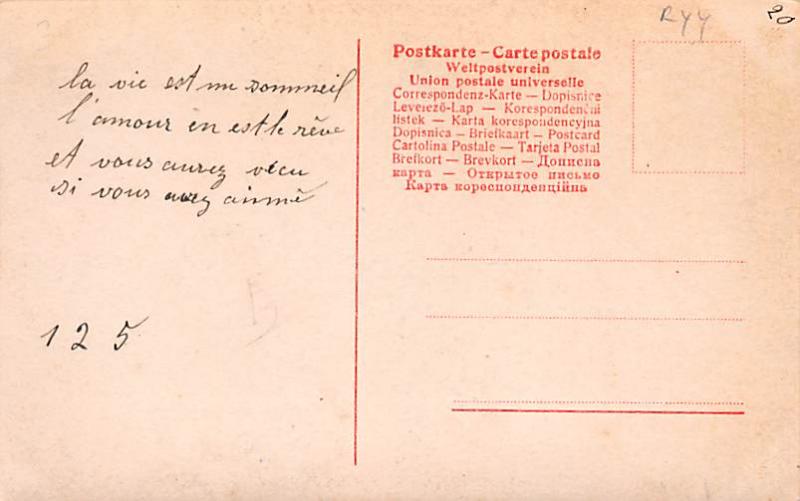 la vie est un sommeil
l'amour en est le rêve
et vous aurez vécu
si vous avez aimé
1 2 5
RYY
20
Postkarte – Carte postale
Weltpostverein
Union postale universelle
Correspondenz-Karte — Dopisnice
Levelező-Lap — Korespondenční
lístek — Karta korespondencyjna
Dopisnica — Briefkaart — Postcard
Cartolina Postale — Tarjeta Postal
Brefkort — Brevkort — Дописна
карта — Открытое письмо
Карта кореспонденційна